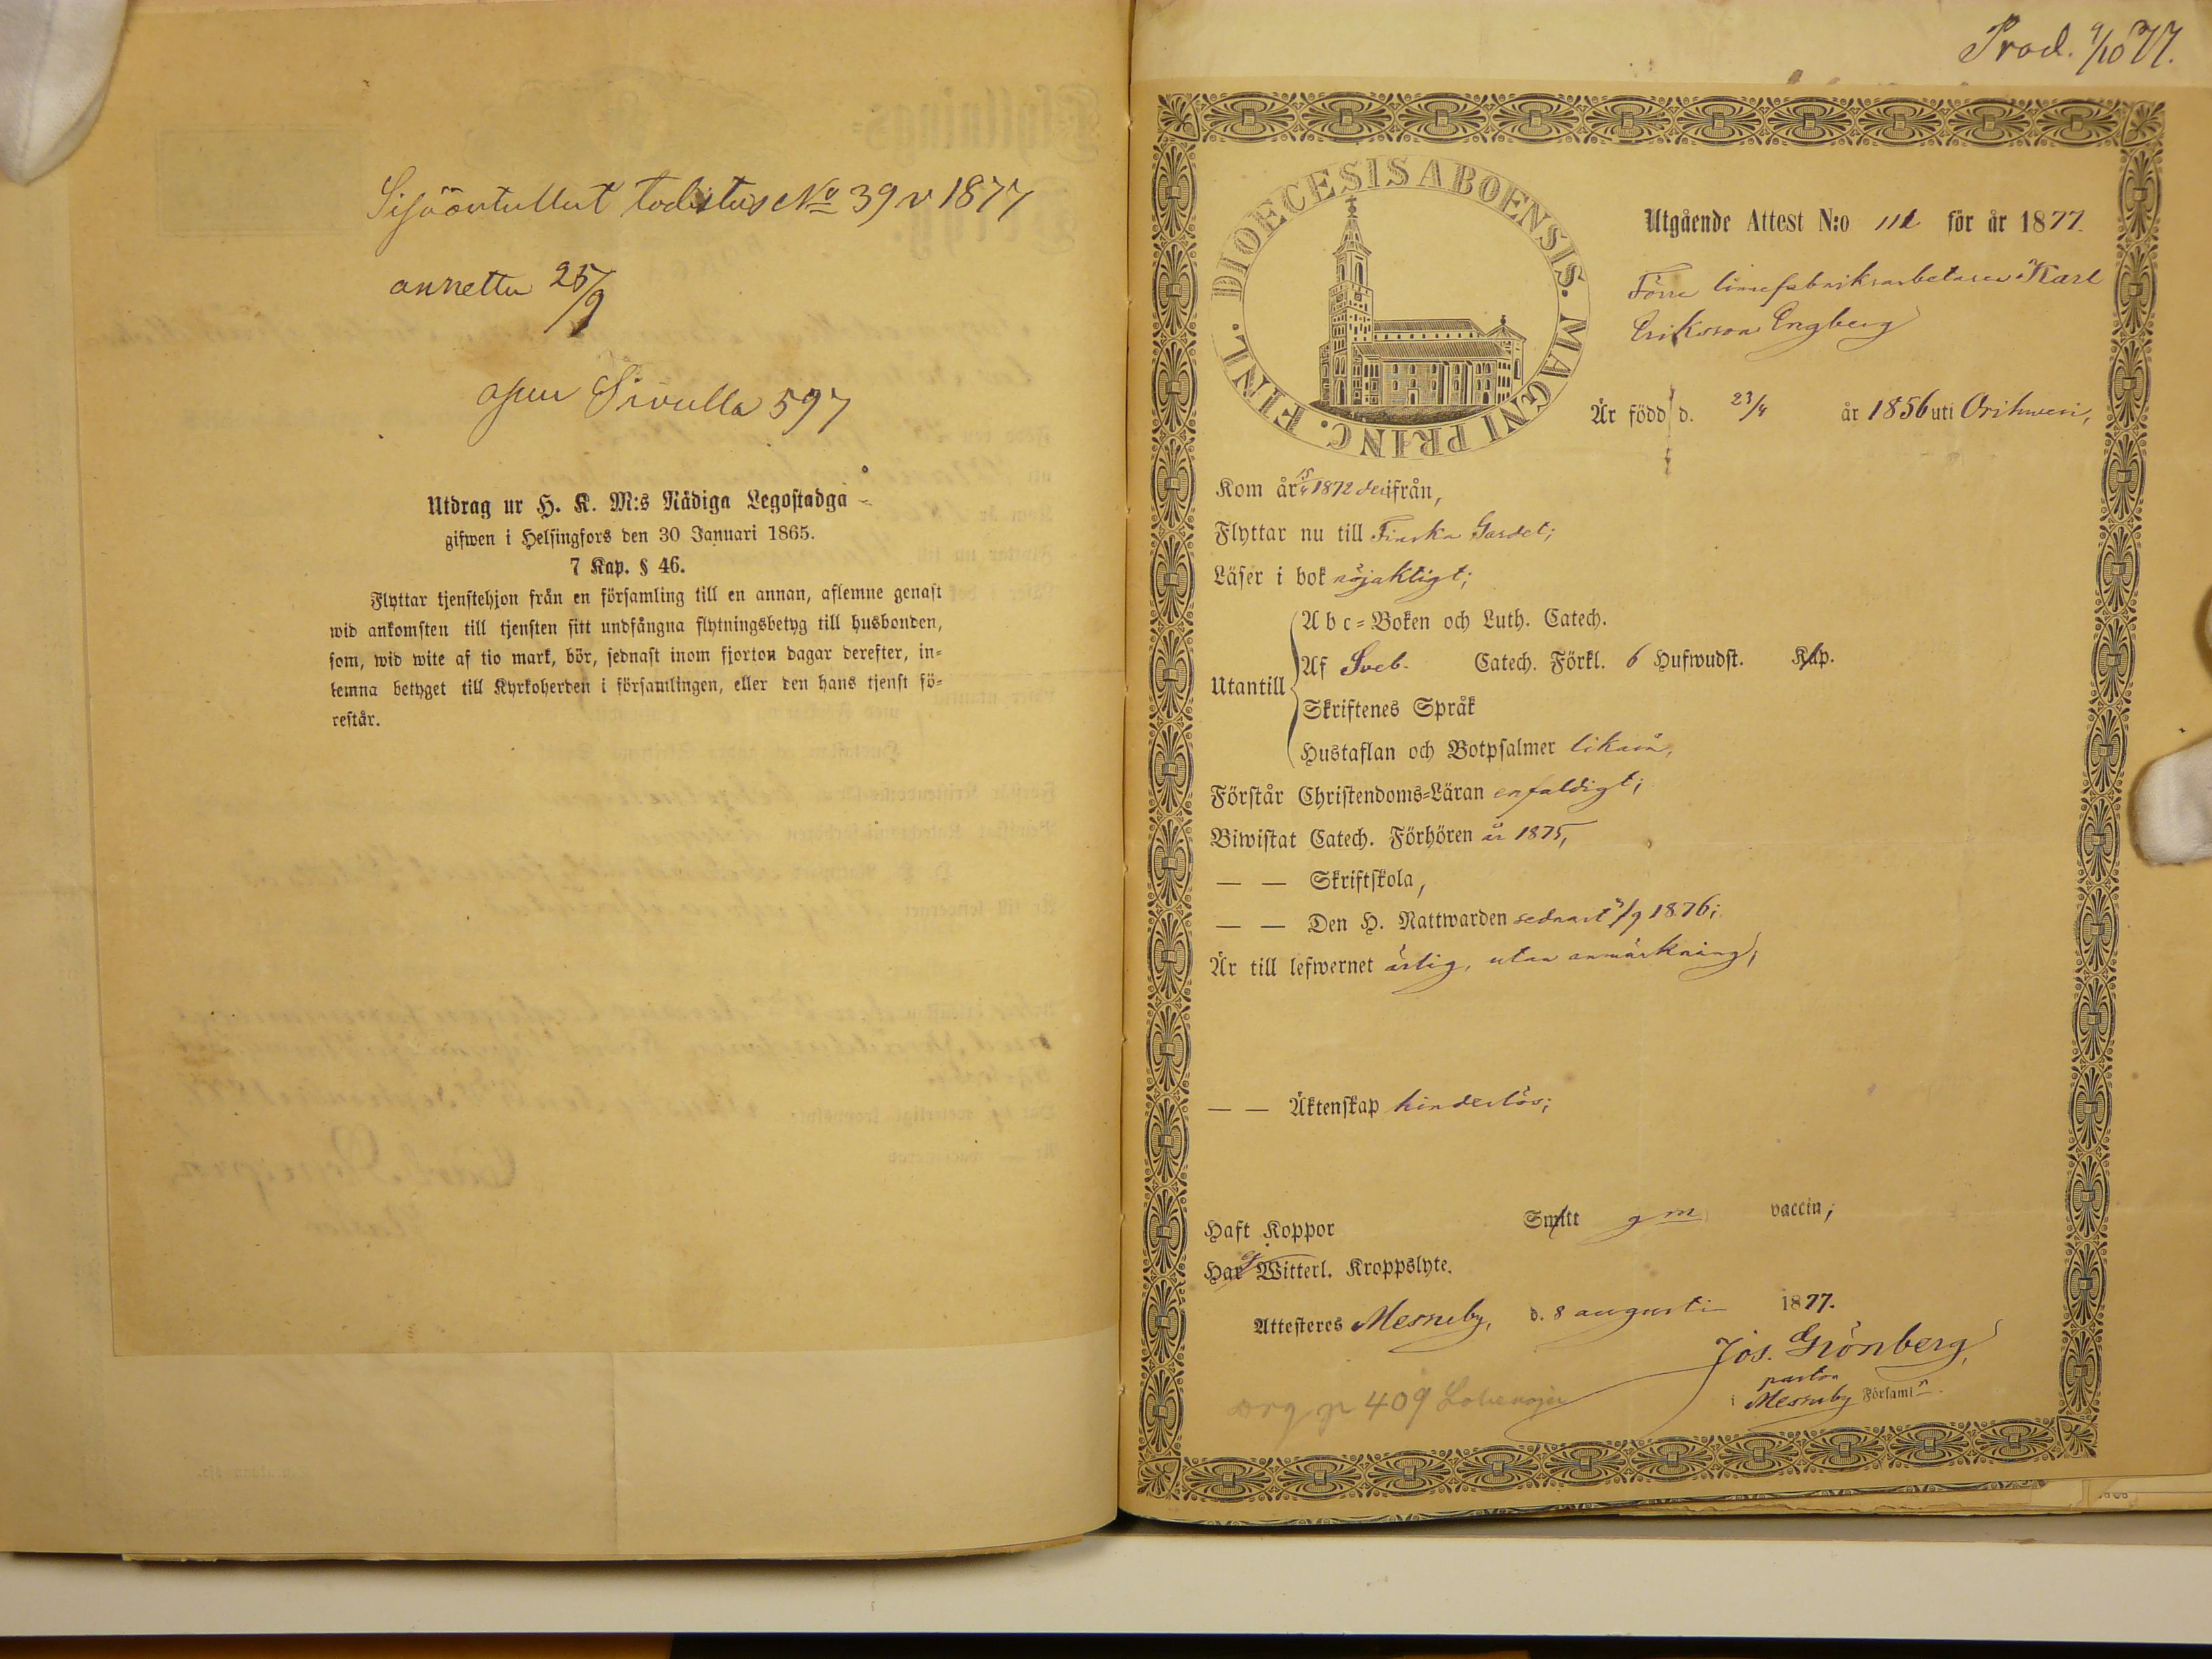 Sisääntullut todistus No 39 v 1877
annettu 25/9
asuu Sivulla 597
Utdrag ur H. K. M:s Nådiga Legostadga
gifwen i Helsingfors den 30 Januari 1865.
7 Kap. § 46.
Flyttar tjenstehjon från en församling till en annan, aflemne genast
wid ankomsten till tjensten sitt undfångna flytningsbetyg till husbonden,
som, wid wite af tio mark, bör, sednast inom fjorton dagar derefter, in-
lemna betyget till Kyrkoherden i församlingen, eller den hans tjenst fö-
restår.
Prod. 9/10 77.
DIOECESIS ABOENSIS. MAGNI PRINC. FINL.
Utgående Attest N:o 112 för år 1877.
Förre linnefabriksarbetaren Karl
Eriksson Engberg
Är född d. 23/4 år 1856 uti Orihwesi,
Kom år 1872 derifrån,
Flyttar nu till Finska Gardet;
Läser i bok nöjaktigt;
Utantill
Abc-Boken och Luth. Catech.
Af Sveb. Catech. Förkl. 6 Hufwudst. Kap.
Skriftenes Språk
Hustaflan och Botpsalmer likaså,
Förstår Christendoms-Läran enfaldigt;
Biwistat Catech. Förhören år 1875,
— — Skriftskola,
— — Den H. Nattwarden sednast /9 1876;
Är till lefwernet ärlig, utan anmärkning;
— — Äktenskap hinderlös;
Haft Koppor Smitt g m vaccin;
Har ej Witterl. Kroppslyte.
Attesteres Messuby, d. 8 augusti 1877.
Jos. Grönberg,
pastor
i Messuby Församln.
org p 409